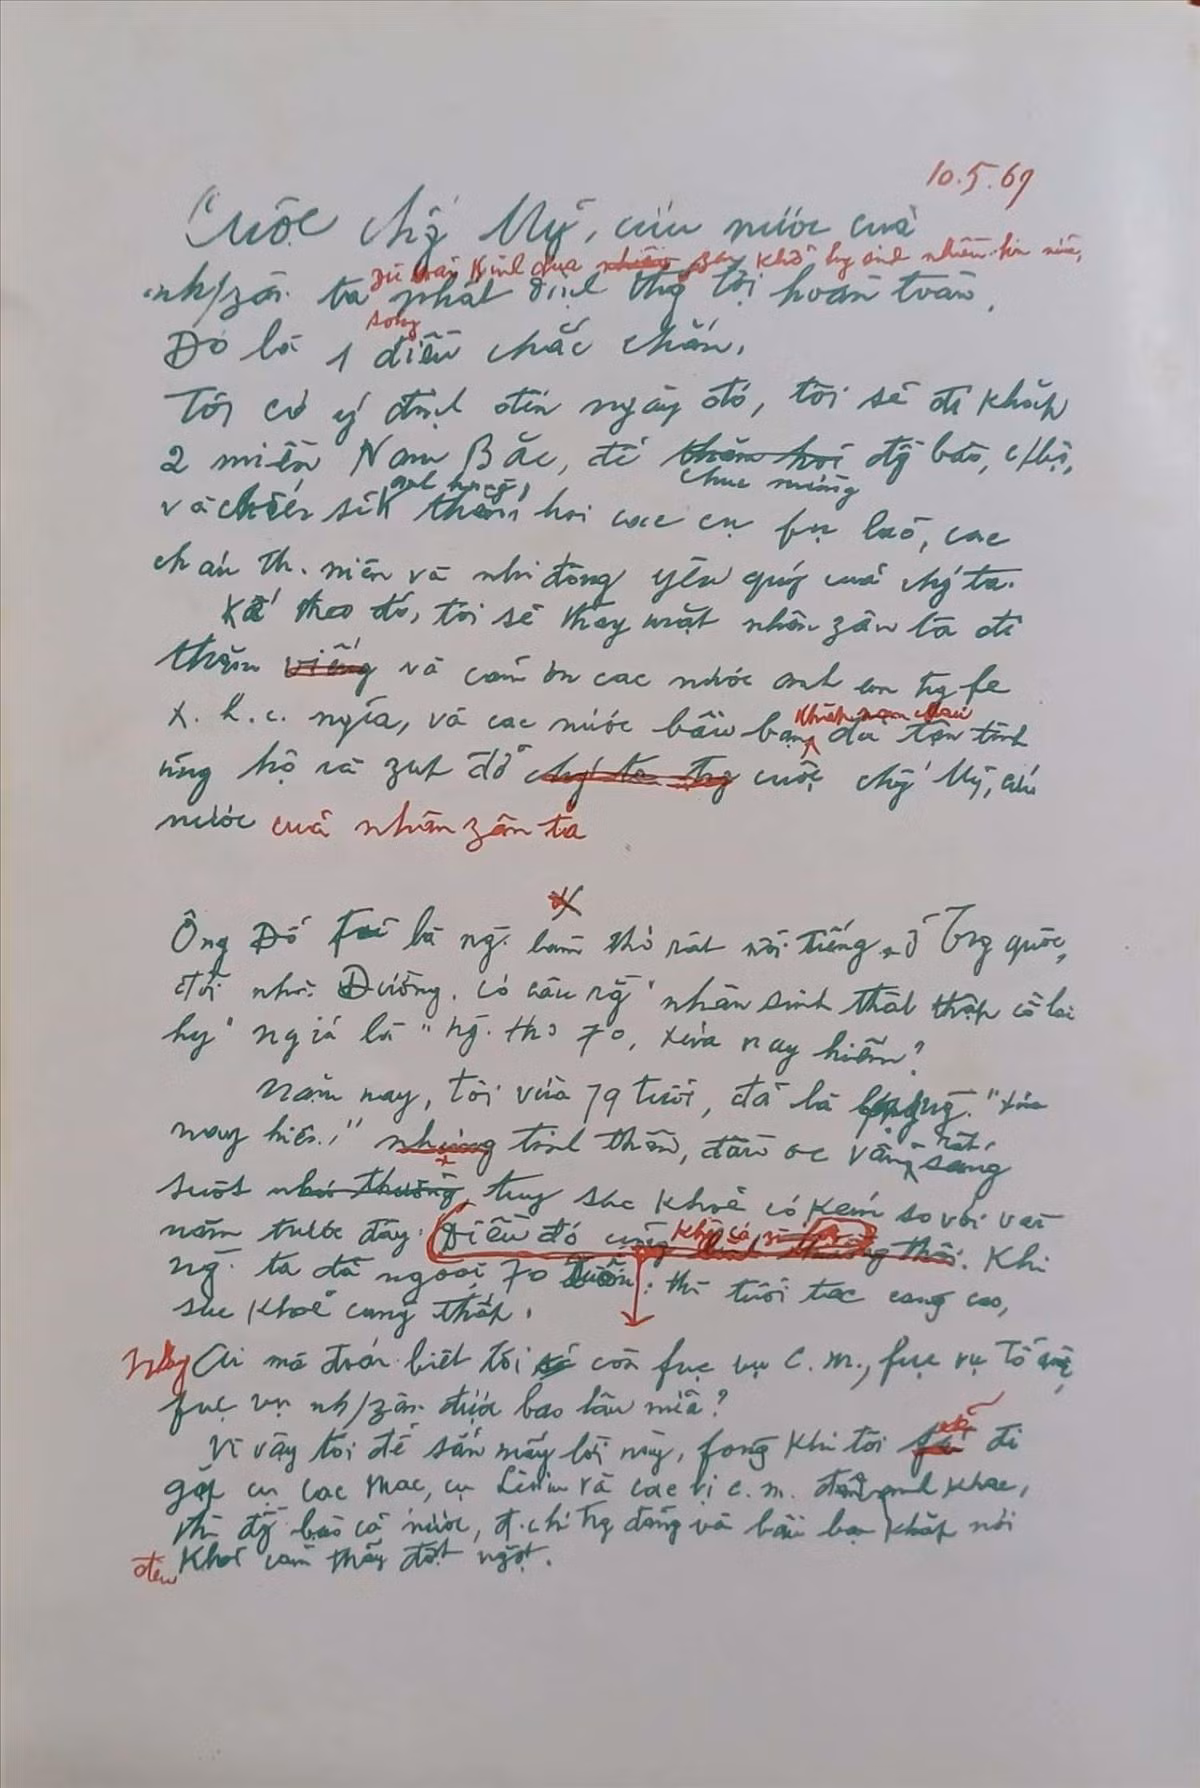 10.5.69
Cuộc chg' Mỹ, cứu nước của
zù fải kinh qua nhiều zan khổ hy sinh nhiều hơn nữa,
nh/zân ta phất định thg' lợi hoàn toàn.
song
Đó là 1 điều chắc chắn.
Tôi có ý định đến ngày đó, tôi sẽ đi khắp
2 miền Nam Bắc, để thăm hỏi đg` bào, c/bộ,
chúc mừng
anh hùng,
và chiến sĩ thăm hỏi các cụ fụ lão, các
cháu th. niên và nhi đồng yêu quý của chg' ta.
Kế theo đó, tôi sẽ thay mặt nhân zân ta đi
thăm viếng và cảm ơn các nước anh em tg fe
x. h. c. ngĩa, và các nước bầu bạn đã tận tình
khắp năm châu
ủng hộ và zúp đỡ chg' ta trg cuộc chg' Mỹ, cứu
nước của nhân zân ta
x
Ông Đỗ Fủ là ng. làm thơ rất nổi tiếng ở Trg quốc,
đời nhà Đường. có câu rg` "nhân sinh thất thập cổ lai
hy" ngĩa là "ng. thọ 70, xưa nay hiếm"
Năm nay, tôi vừa 79 tuổi, đã là lớp ng. "xưa
nay hiếm" nhưng tinh thần, đầu óc vẫn sáng
rất
suốt như thường, tuy sức khoẻ có kém so với vài
năm trước đây. Điều đó cũng bình thường thôi. Khi
không có gì lạ
ng. ta đã ngoài 70 xuân, thì tuổi tác càng cao,
sức khoẻ càng thấp.
Nhưng Ai mà đoán biết tôi sẽ còn fục vụ c.m., fục vụ Tổ quốc,
fục vụ nh/zân được bao lâu nữa?
Vì vậy tôi để sẵn mấy lời này, fòng khi tôi sẽ đi
gặp cụ Các Mác, cụ Lênin và các vị c.m. đàn anh khác,
thì đg` bào cả nước, đ.chí trg đảng và bầu bạn khắp nơi
đều khỏi cảm thấy đột ngột.